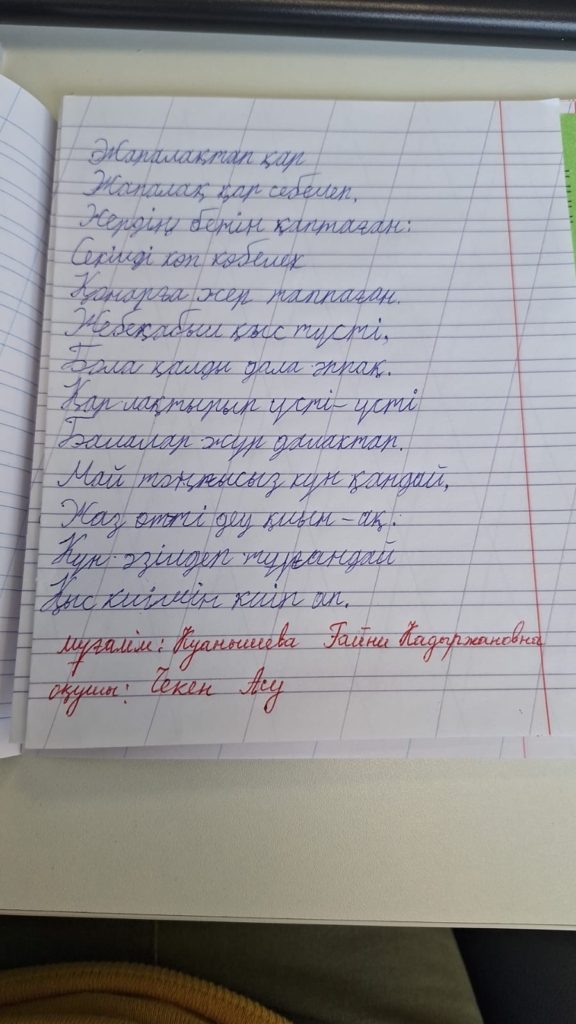 Жапалақтап қар
Жапалақ қар себелеп,
Жердің бетін қаптаған:
Секілді көп көбелек
Қонарға жер таппаған.
Жебеқабыл қыс түсті,
Бола қалды дала аппақ.
Қар лақтырып үсті-үсті
Балалар жүр далақтап.
Май тоңғысыз күн қандай,
Жаз өтті деу қиын-ақ:
Күн әзілдеп тұрғандай
Қыс киімін киіп ап.
мұғалім: Куанышева Гайни Кадыржановна
оқушы: Чекен Асу